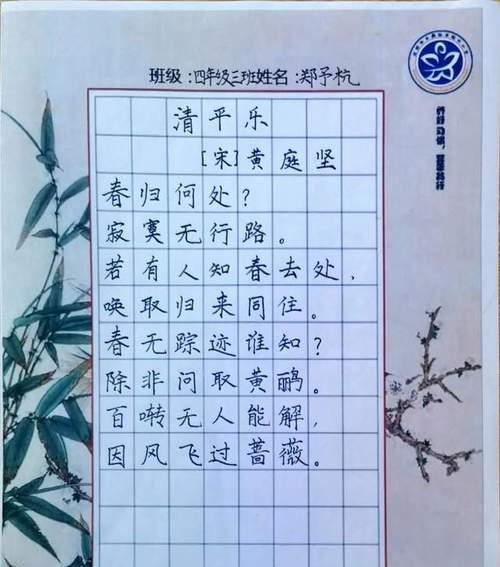 班级:四年级三班姓名:郑予杭
清平乐
[宋]黄庭坚
春归何处?
寂寞无行路。
若有人知春去处,
唤取归来同住。
春无踪迹谁知?
除非问取黄鹂。
百啭无人能解,
因风飞过蔷薇。